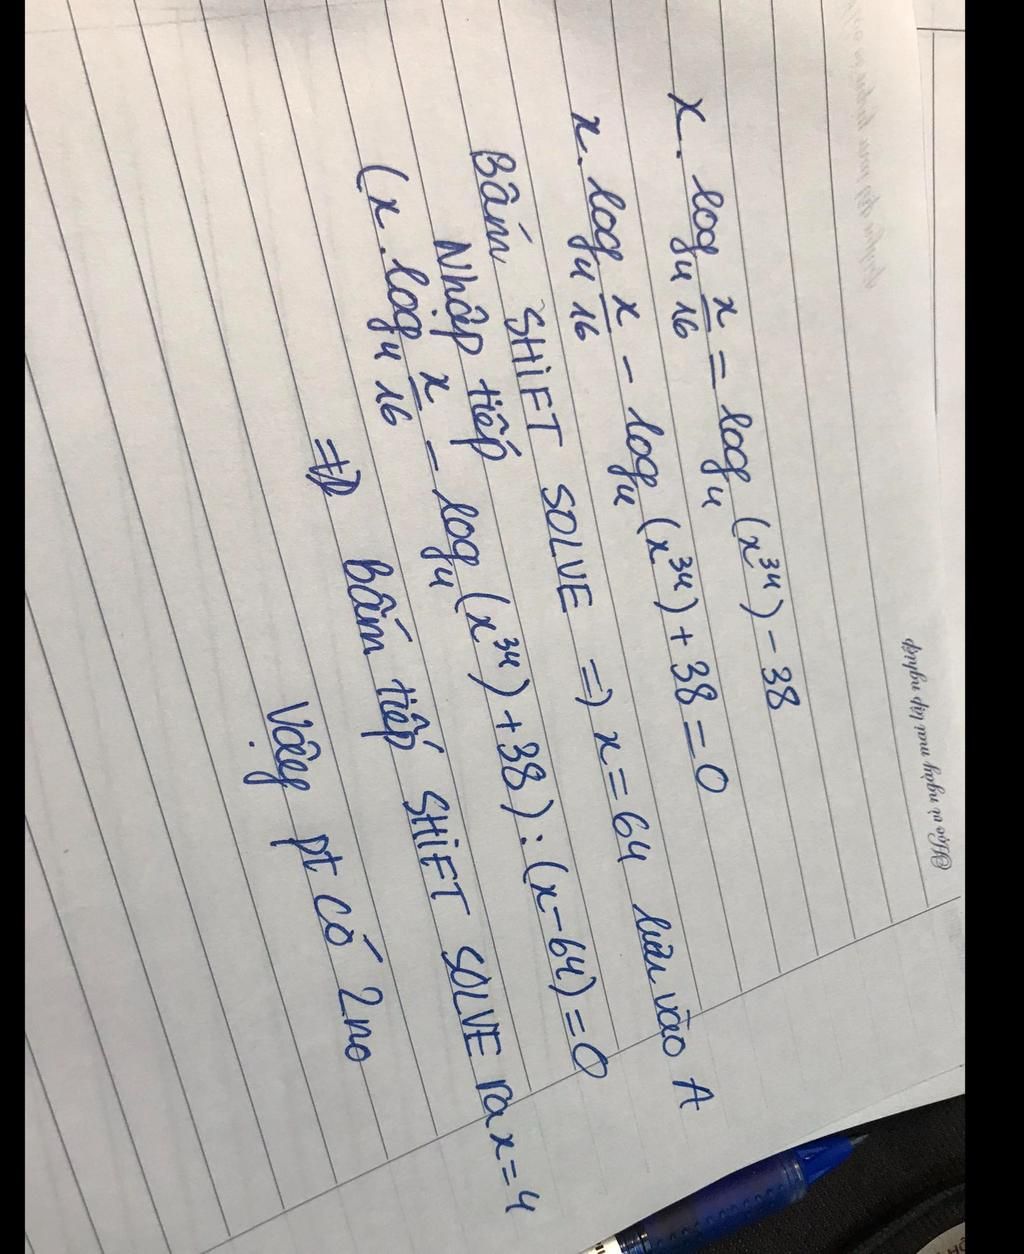 @Học vì ngày mai lập nghiệp
x. log₄ x/16 = log₄ (x³⁴) - 38
x. log₄ x/16 - log₄ (x³⁴) + 38 = 0
Bấm SHIFT SOLVE => x = 64 lưu vào A
Nhập tiếp
(x. log₄ x/16 - log₄ (x³⁴) + 38) : (x-64) = 0
=> bấm tiếp SHIFT SOLVE ra x = 4
Vậy pt có 2 no